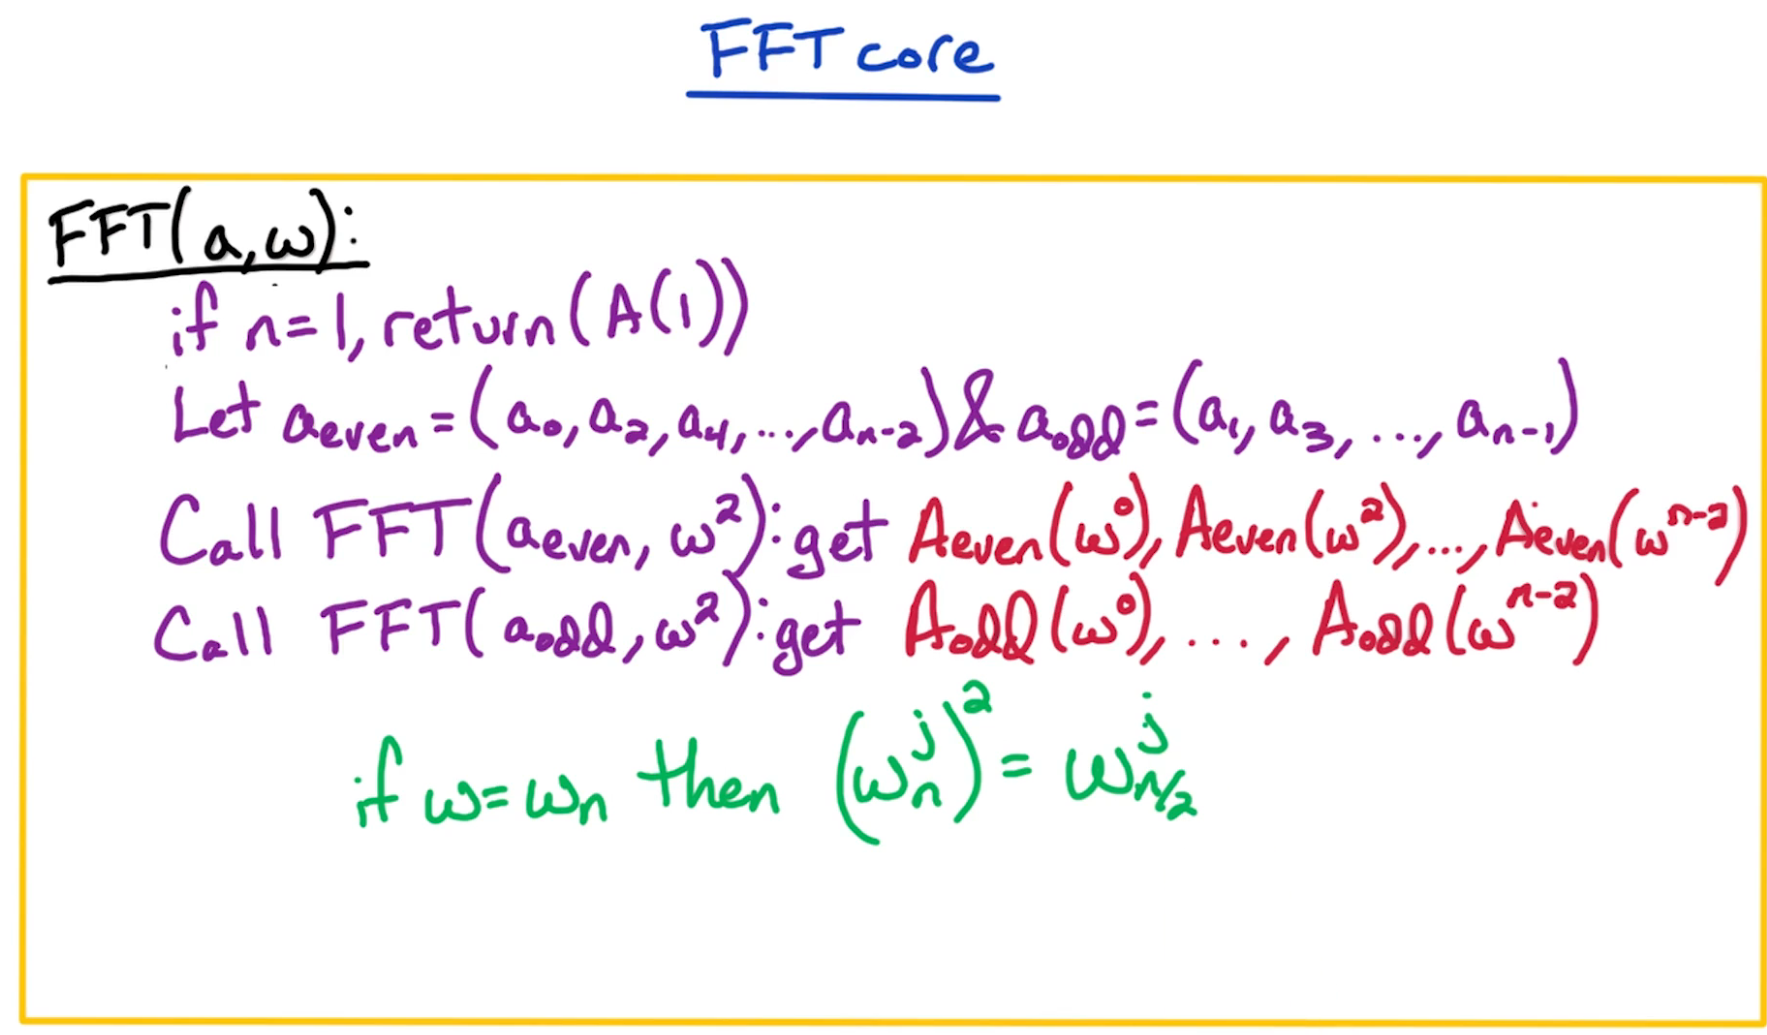 FFT core
FFT(a,ω):
if n=1, return(A(1))
Let a_even = (a_0, a_2, a_4, ..., a_{n-2}) & a_odd = (a_1, a_3, ..., a_{n-1})
Call FFT(a_even, ω²): get A_even(ω⁰), A_even(ω²), ..., A_even(ω^{n-2})
Call FFT(a_odd, ω²): get A_odd(ω⁰), ...., A_odd(ω^{n-2})
if ω=ω_n then (ω_n^j)² = ω_{n/2}^j